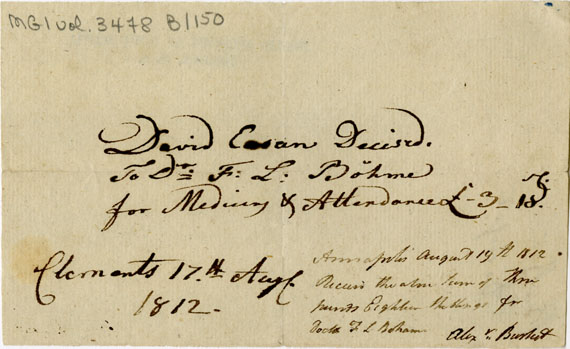 MG1 vol. 3478 B/150
David Eason Decisd.
To Dr. F: L: Böhme
for Medicin & Attendance £-3-18.
Clements 17.th Augt.
1812.-
Annapolis August 19th 1812.
Receivd the above Sum of three
pounds Eighteen Shillings for
Doctr F L Boham
Alexr.